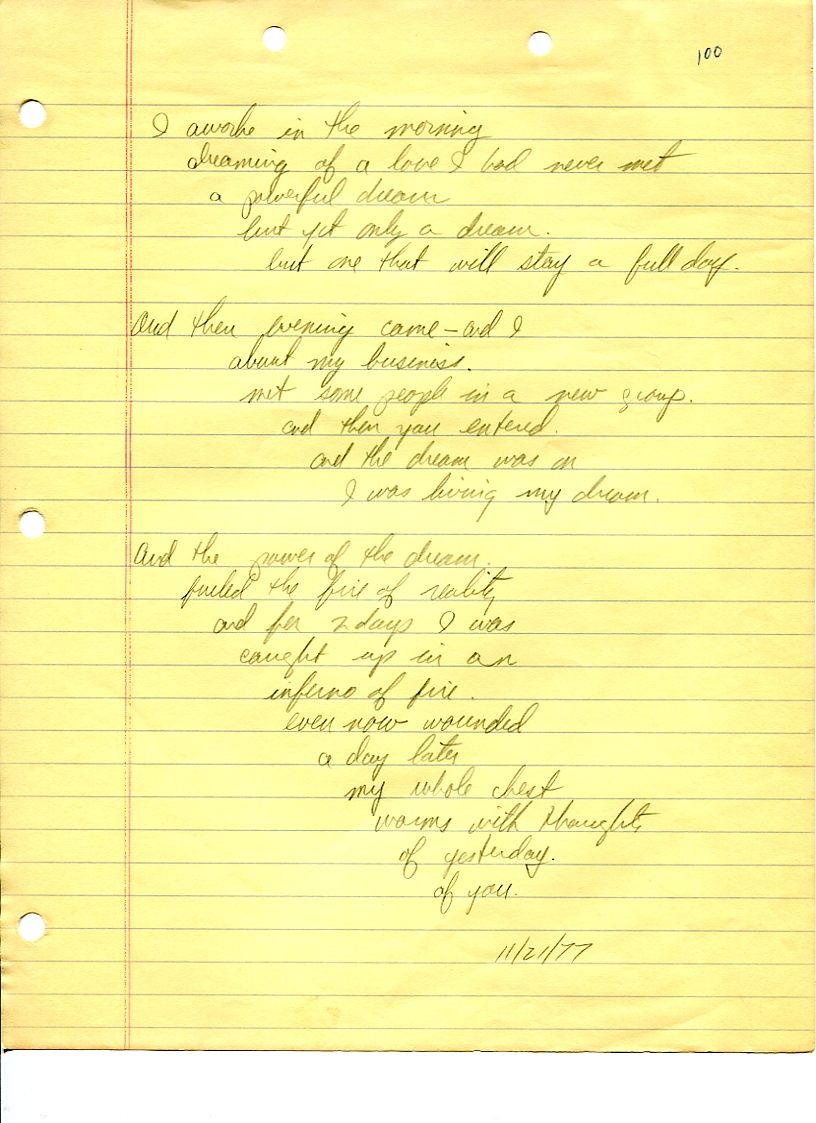 100
I awoke in the morning
dreaming of a love I had never met
a powerful dream
but yet only a dream.
but one that will stay a full day.
And then evening came – and I
about my business.
met some people in a new group.
and then you entered.
and the dream was on
I was living my dream.
And the power of the dream.
fueled the fire of reality
and for 2 days I was
caught up in an
inferno of fire.
even now wounded
a day later
my whole chest
warms with thoughts
of yesterday.
of you.
11/21/77